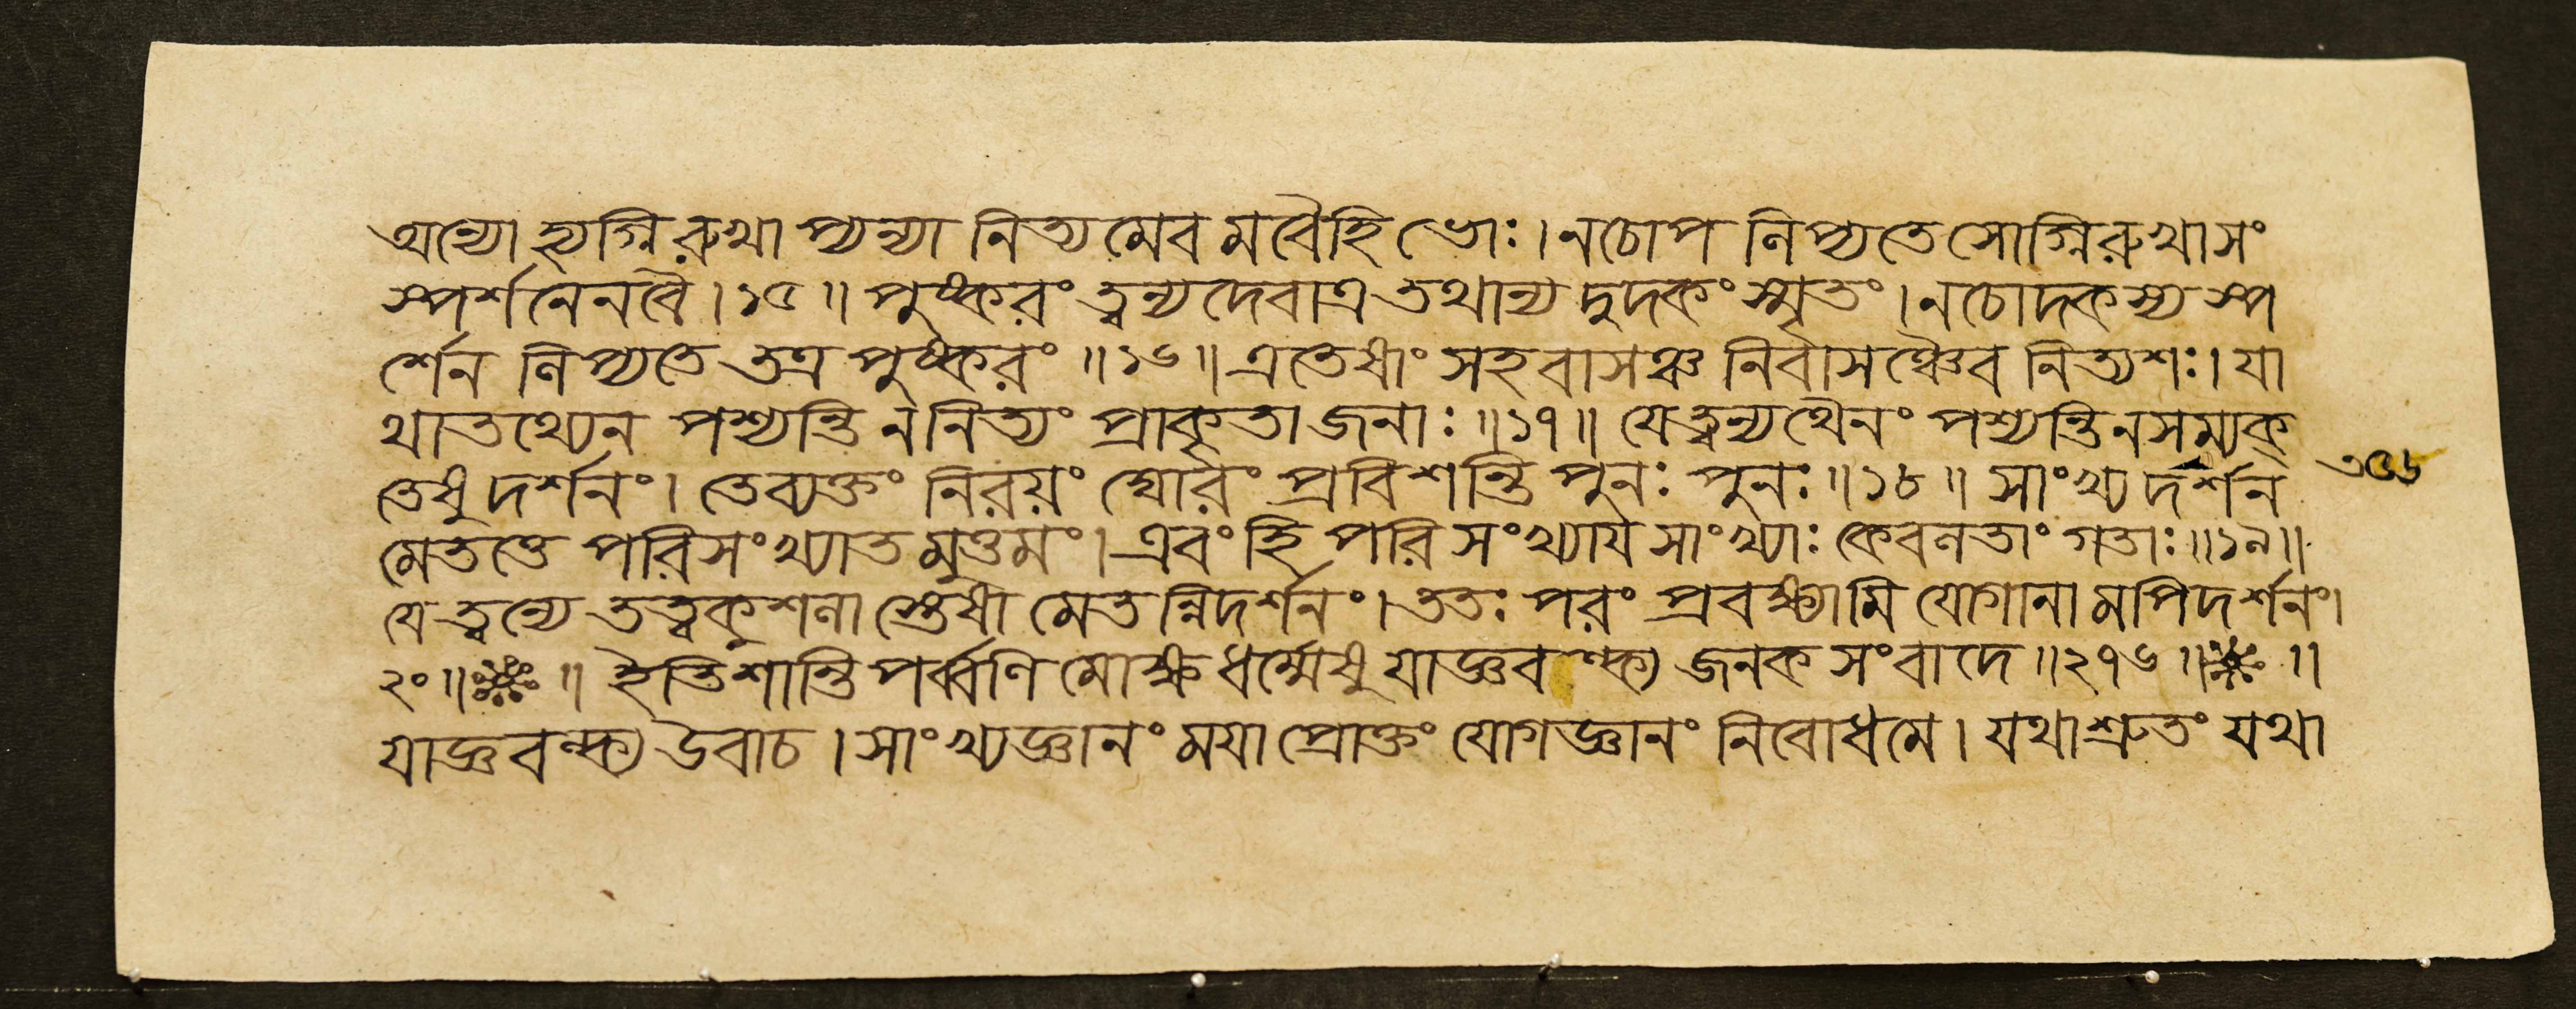 অন্যো হ্যগ্নিরুখা প্যন্যা নিত্যমেবমবৈহি ভোঃ। ন চোপ লিপ্যতে সোগ্নিরুখাসং
স্পর্শনেন বৈ। ১৫॥ পুষ্করং ত্বন্যদেবাত্র তথান্যদুদকং স্মৃতং। ন চোদকস্য স্প
র্শেন লিপ্যতে তত্র পুষ্করং॥১৬॥ এতেষাং সহবাসঞ্চ নির্বাসঞ্চৈব নিত্যশঃ। যা
থাতথ্যেন পশ্যন্তি ন নিত্যং প্রাকৃতা জনাঃ॥১৭॥ যে ত্বন্যথৈনং পশ্যন্তি ন সম্যক্
তেষু দর্শনং। তে ব্যক্তং নিরয়ং ঘোরং প্রবিশন্তি পুনঃ পুনঃ॥১৮॥ সাংখ্য দর্শন
মেতত্তে পরিসংখ্যাতমুত্তমং। এবং হি পরিসংখ্যায সাংখ্যাঃ কেবলতাং গতাঃ॥১৯॥
যে ত্বন্যে তত্ত্বকুশলা স্তেষা মেতন্নিদর্শনং। ততঃ পরং প্রবক্ষ্যামি যোগানামপি দর্শনং।
২০॥ ॥ ইতি শান্তিপর্ব্বণি মোক্ষধর্ম্মেষু যাজ্ঞবল্ক্য জনক সংবাদে॥২৭৬॥ ॥
যাজ্ঞবল্ক্য উবাচ। সাংখ্যজ্ঞানং ময়া প্রোক্তং যোগজ্ঞানং নিবোধ মে। যথাশ্রুতং যথা
৩৫৬